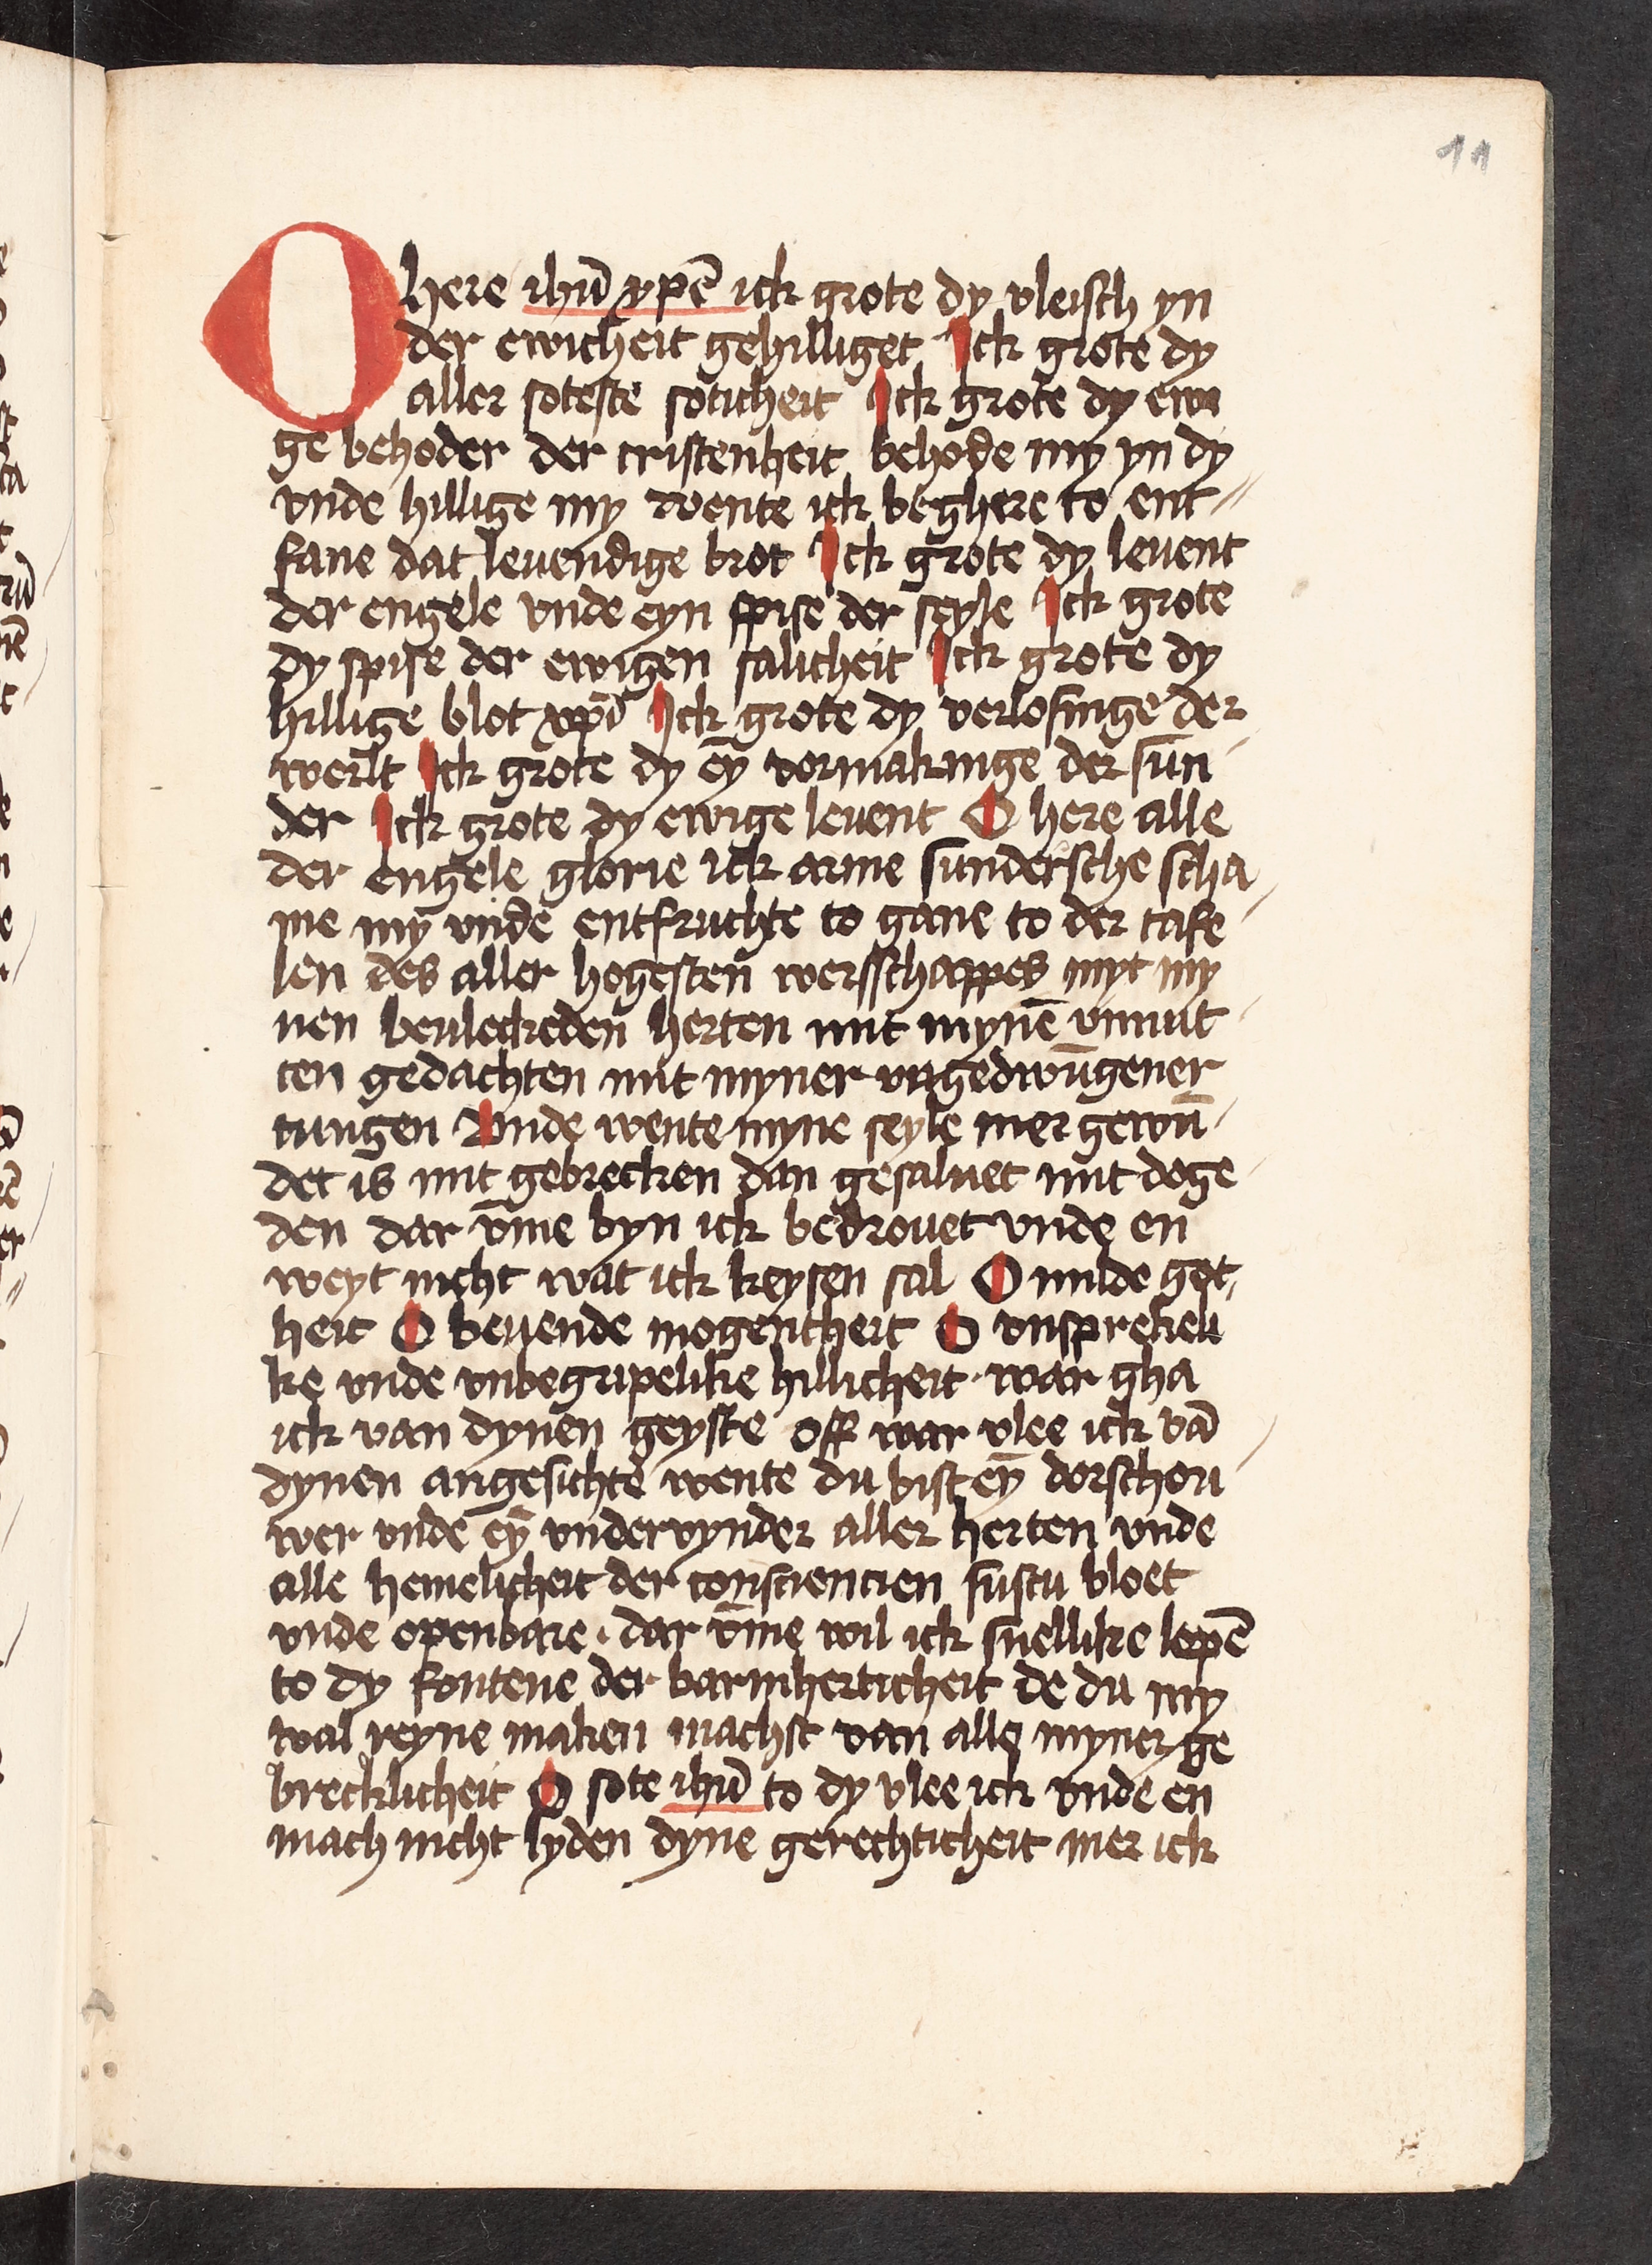 11
O here ihū xpē ick grote dy vleisch yn
der ewicheit gehilliget Ick grote dy
aller soteste soticheit Ick grote dy ewi
ge behoder der cristenheit behode my yn dy
vnde hillige my wente ick beghere to ent-
fane dat leuendige brot Ick grote dy leuent
der engele vnde eyn spise der seyle Ick grote
dy spise der ewigen salicheit Ick grote dy
hillige blot xpī Ick grote dy verlosinge der
werlt Ick grote dy eȳ vormakinge der sun-
der Ick grote dy ewige leuent O here alle
der engele glorie ick arme sundersche scha-
me my vnde entfruchte to gane to der tafe-
len des aller hogesten wersschappes myt my
nen beuleckeden herten mit mynē vnnut-
ten gedachten mit myner vngedwūgener
tungen Vnde wente myne seyle mer gewū-
det is mit gebrecken dan gesaluet mit doge-
den dar v̄me byn ick bedrouet vnde en
weyt nicht wat ick keysen sal O milde got-
heit O beuende mogentheit O vnsprekeli
ke vnde vnbegripelike hillicheit · war gha
ick van dynen geyste off war vlee ick vā
dynen angesichte wente du bist eȳ dorschou-
wer vnde eȳ vndervynder aller herten vnde
alle hemelicheit der consciencien sustu bloet
vnde openbare · dar v̄me wil ick snellike lopē
to dy fontene der barmherticheit de du my
wal reyne maken machst van alle myner ge
brecklicheit O sote ihū to dy vlee ick vnde en
mach nicht lyden dyne gerechticheit mer ick